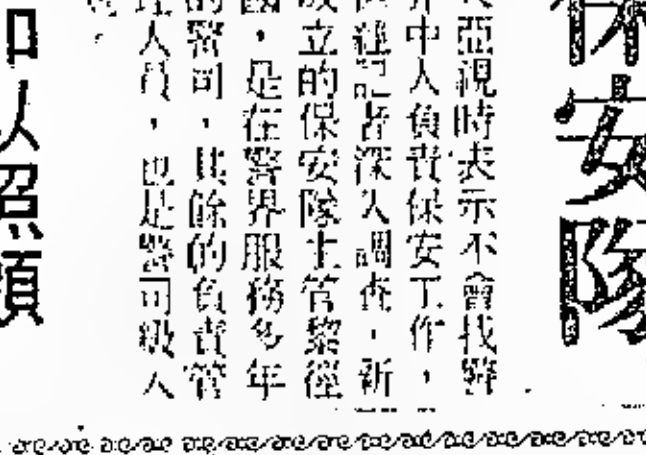 保安隊
亞視時表示不會找警
界中人負責保安工作，
但經記者深入調查，新
成立的保安隊主管黎徑
國，是在警界服務多年
的警司，其餘的負責管
理人員，也是警司級人
加以照顧